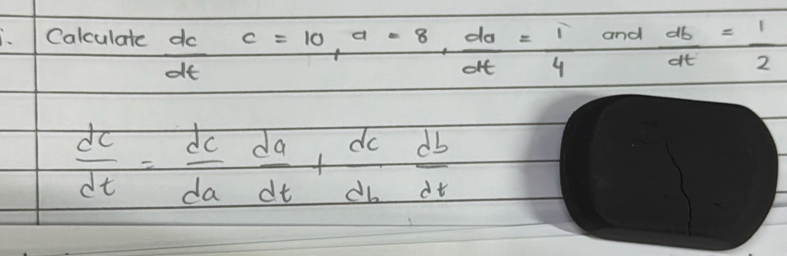 Calculate dc/dt c = 10, a = 8, da/dt = 1/4 and db/dt = 1/2
dc/dt = dc/da da/dt + dc/db db/dt